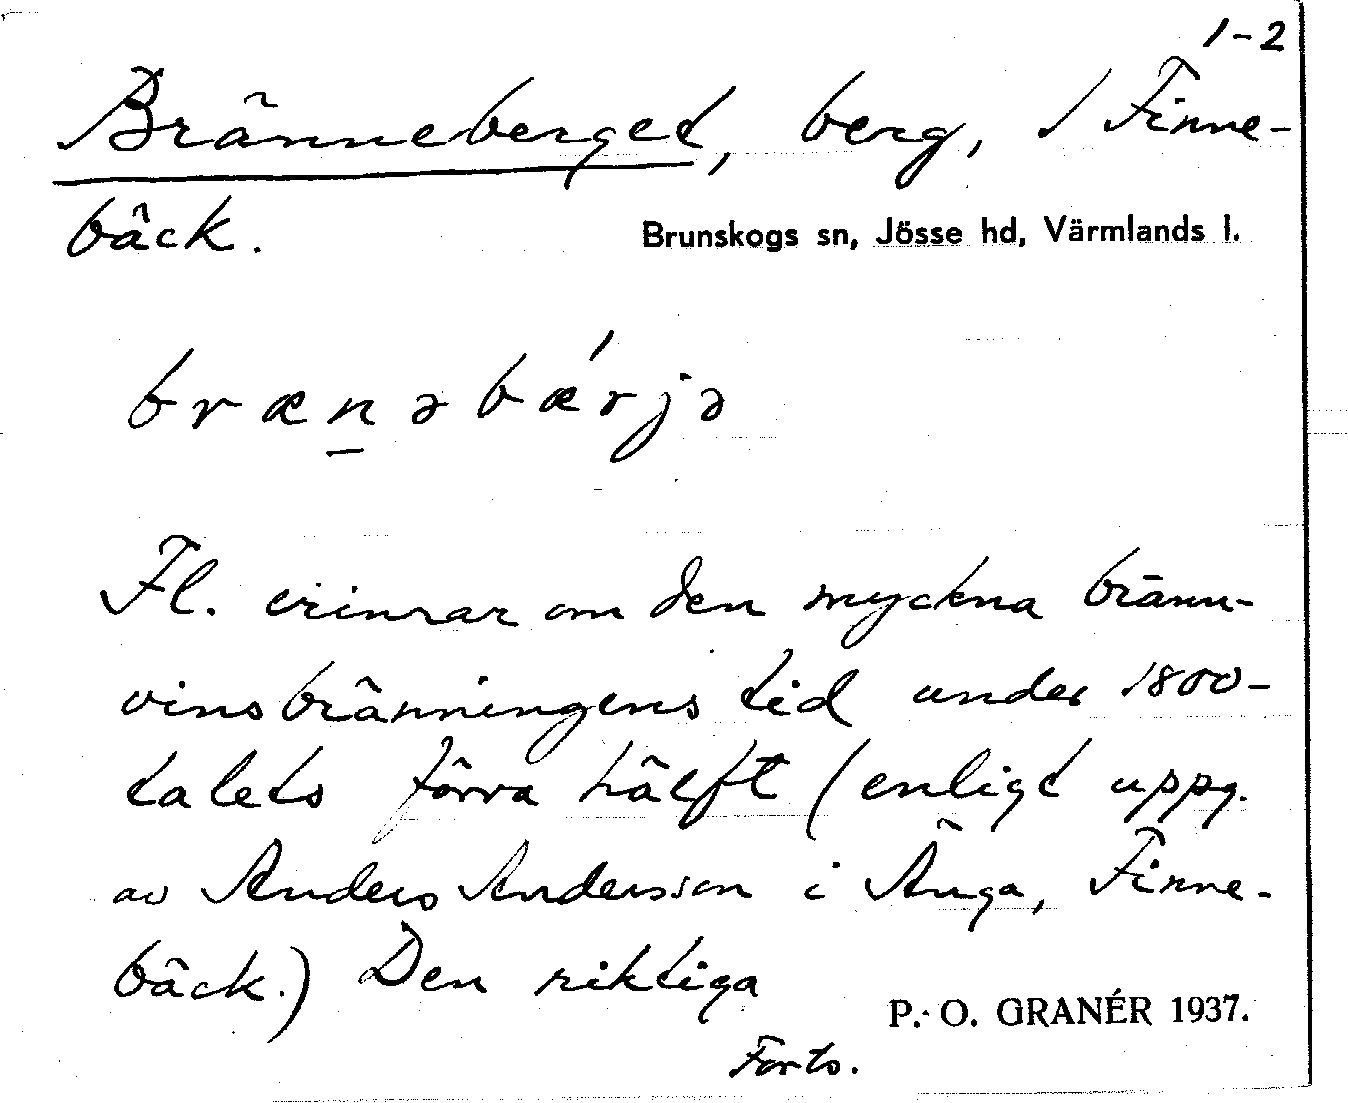 1-2
Bränneberget, berg, / Finne-
bäck.
Brunskogs sn, Jösse hd, Värmlands l.
brænəbǽrjə
Fl. erinrar om den myckna bränn-
vinsbränningens tid under 1800-
talets förra hälft (enligt uppg.
av Anders Andersson i Änga, Finne-
bäck.) Den riktiga
P. O. GRANÉR 1937.
Forts.